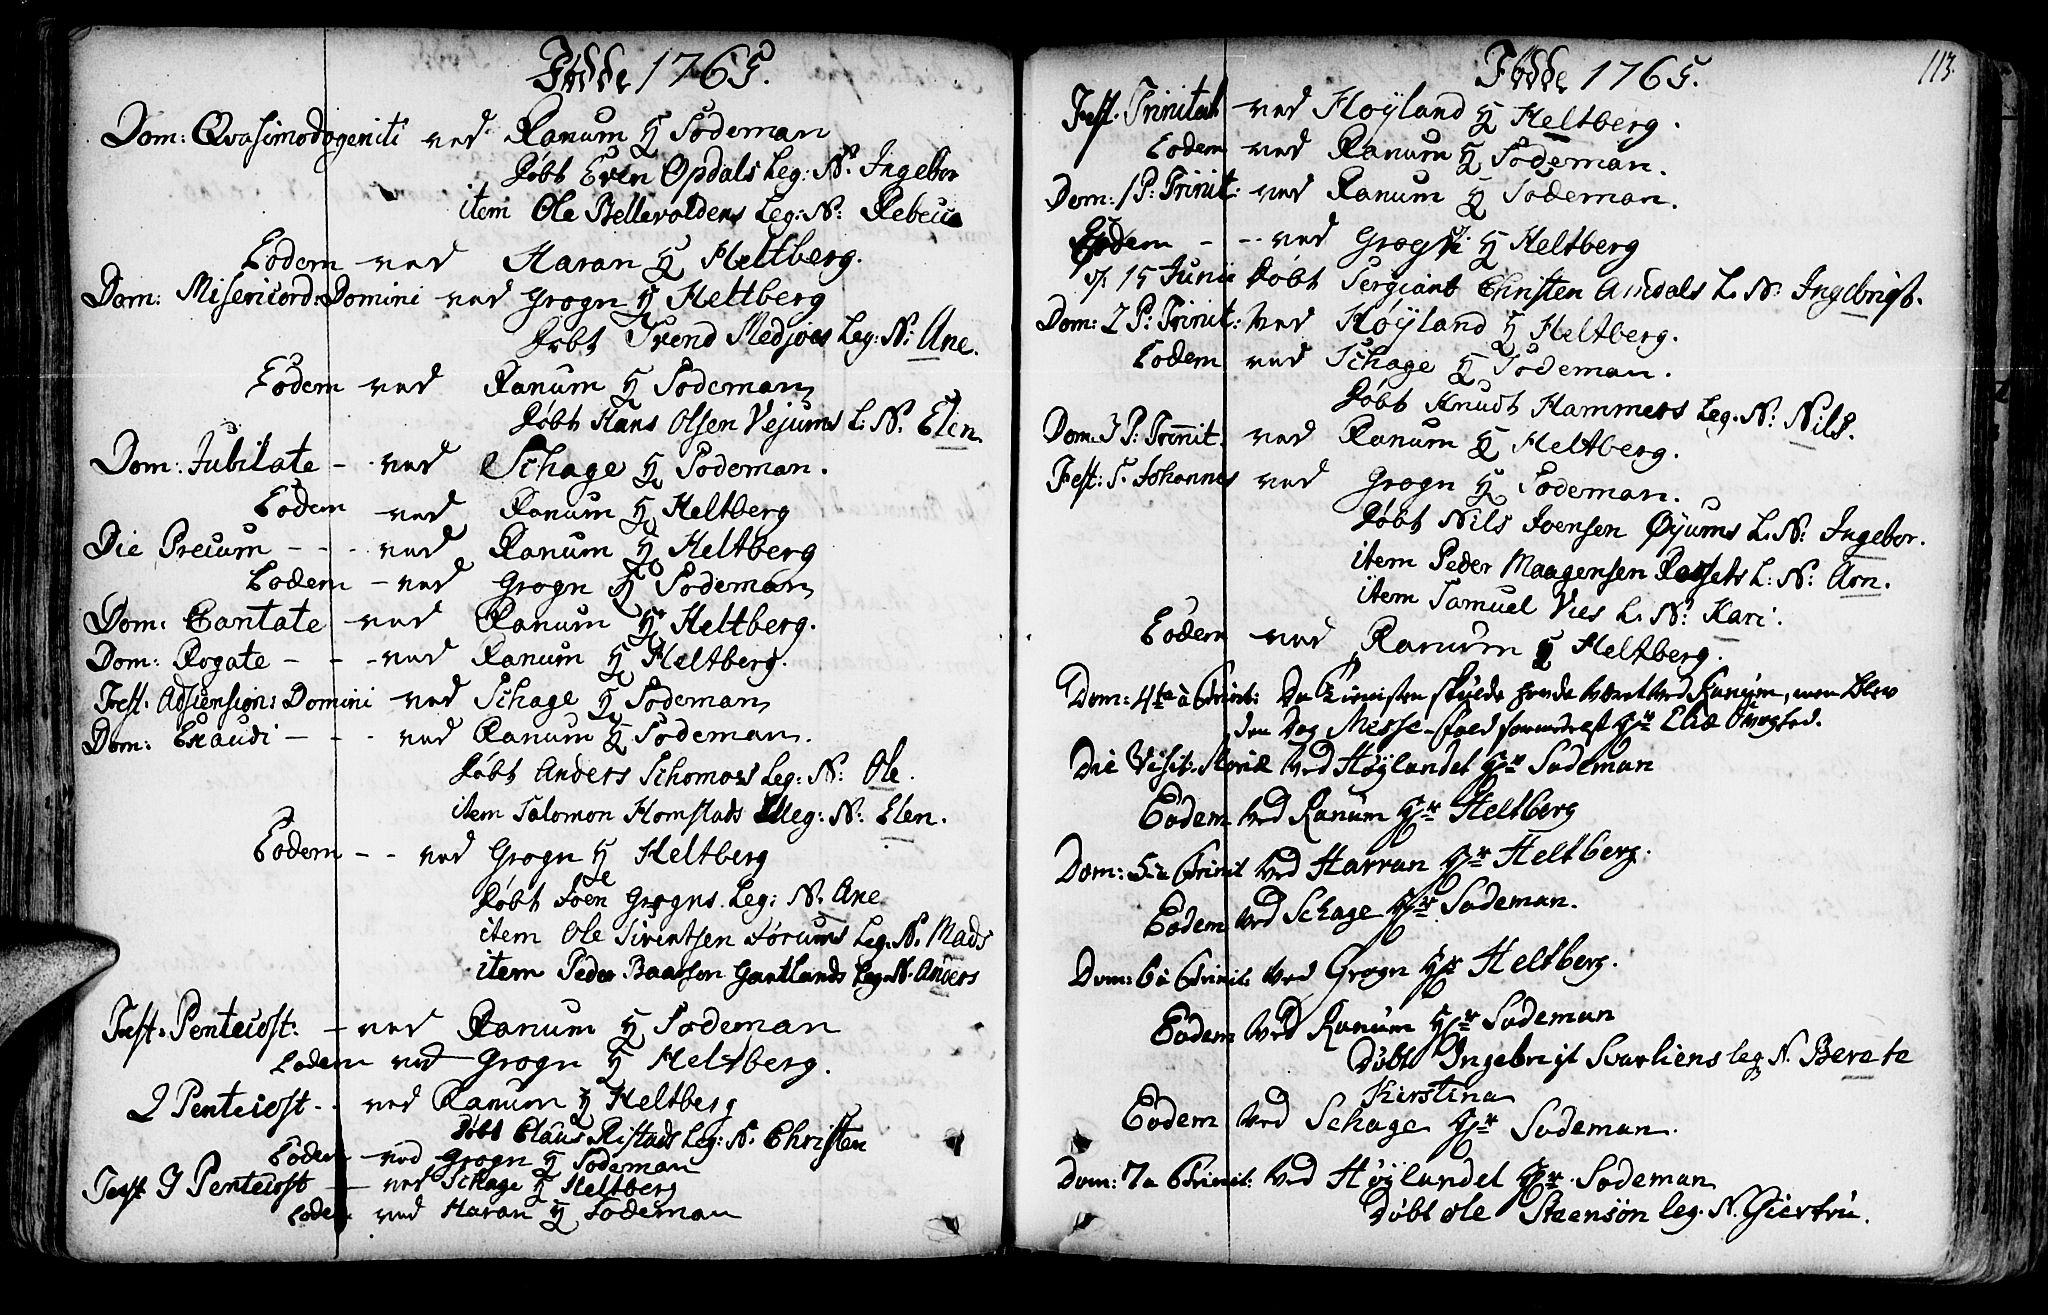 Fødde 1765.
Dom: Qvasimodogeniti ved Ranum H Sodeman
døbt Even Opdals Leg: N: Ingebor
item Ole Bellevoldens Leg: N: Rebecca
Eodem ved Haran H Heltberg.
Dom: Misericord: Domini ved Grogn H Heltberg
døbt Trend Medjoes Leg: N: Ane.
Eodem ved Ranum H Sodeman
døbt Hans Olsen Vejums L. N. Elen
Dom: Jubilate - ved Schage H Sodeman.
Eodem ved Ranum H Heltberg
Die Precum - - - ved Ranum H Heltberg
Eodem - ved Grogn H Sodeman
Dom: Cantate ved Ranum H Heltberg.
Dom: Rogate - - - ved Ranum H Heltberg.
Fest. Adscension: Domini ved Schage H Sodeman
Dom: Exaudi - - - ved Ranum H Sodeman.
døbt Anders Schomoes Leg: N: Ole.
item Salomon Homstads Leg: N: Elen.
Eodem - - ved Grogn H Heltberg
døbt Joen Grogns Leg: N. Ane
item Ole Sivertsen Sørums Leg: N. Mads
item Peder Baarsen Gartlands Leg: N. Anders
Fest: Pentecost: - ved Ranum H Sodeman
Eodem ved Grogn H Heltberg.
2 Pentecost - - ved Ranum H Heltberg
døbt Claus Ristads Leg: N. Christen
Eodem - ved Grogn H Sodeman
Fest 3 Pentecost - ved Schage H Heltberg
Eodem ved Haran H Sodeman
Fødde 1765.
113.
Fest. Trinitat ved Høyland H Heltberg.
Eodem ved Ranum H Sodeman.
Dom: 1 P: Trinit: ved Ranum H Sodeman.
Eodem - - ved Grogn H Heltberg
15 Junii døbt Sergiant Christen Amdals L. N. Ingebrigt.
Dom: 2 P: Trinit: ved Høyland H Heltberg.
Eodem ved Schage H Sodeman.
døbt Knudt Hammers Leg: N: Nils.
Dom. 3 P: Trinit. ved Ranum H Heltberg.
Fest: S. Johannes ved Grogn H Sodeman.
døbt Nils Joensen Øyums L. N: Ingebor.
item Peder Maagensen L: N: Arn.
item Samuel Vies L. N: Kari.
Eodem ved Ranum H Heltberg.
Dom: 4ta à Trinit: Da Tienisten skulde hende været ved Ranum, men blev
den Dag Messe-fald
Die Visit. Mariæ ved Høylandet Hr Sodeman
Eodem ved Ranum Hr Heltberg
Dom: 5 a Trinit ved Harran Hr Heltberg.
Eodem ved Schage Hr Sodeman.
Dom: 6 à Trinit: ved Grogn Hr Heltberg.
Eodem ved Ranum Hr Sodeman
Døbt Ingebrigt Svarliens leg N. Berete
Kirstina
Eodem ved Schage Hr Sodeman.
Dom: 7 a Trinit: ved Høylandet Hr. Sodeman
Døbt Ole Steensøn leg. N. Giertru.